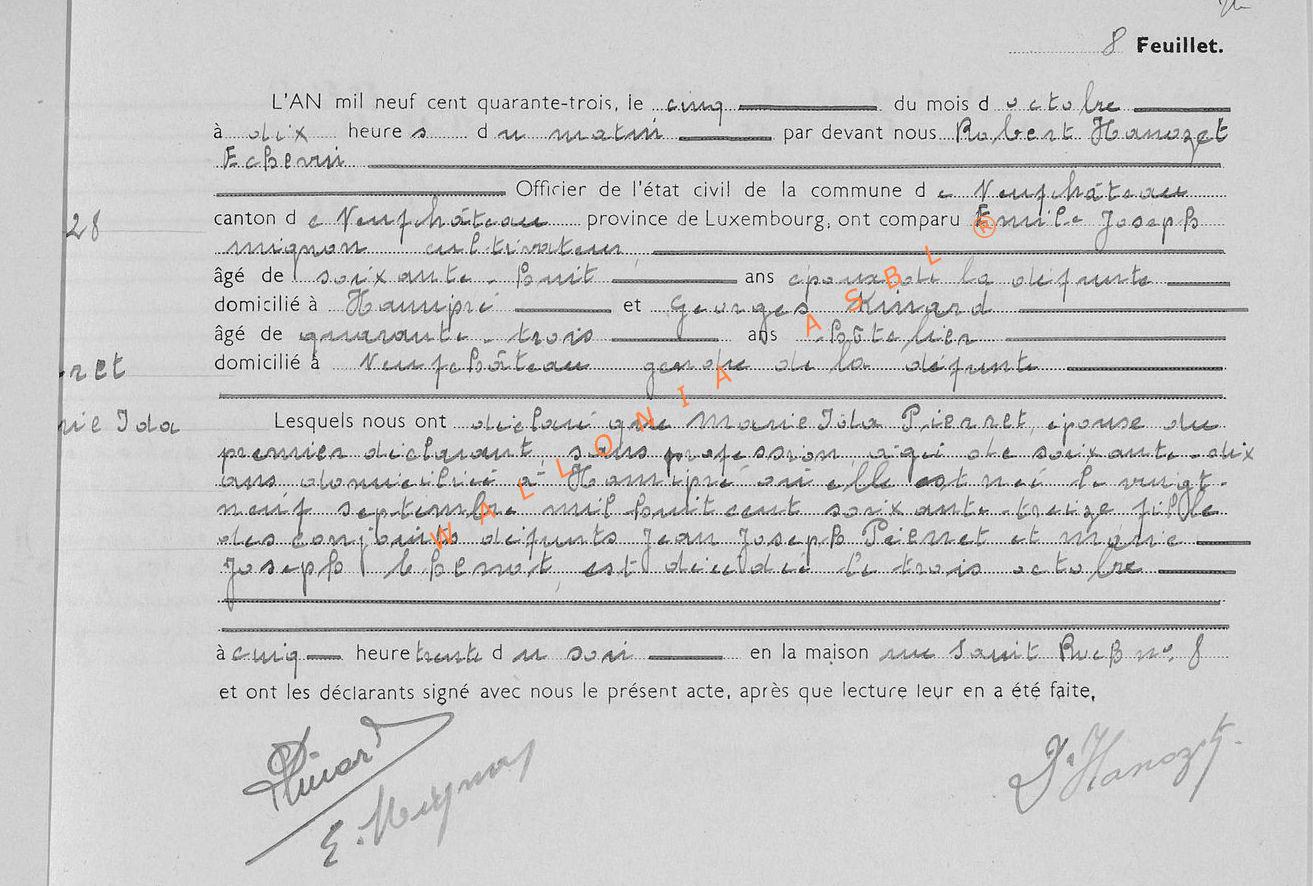 8 Feuillet.
L'AN mil neuf cent quarante-trois, le cinq du mois d octobre
à dix heure s du matin par devant nous Robert Hanozet
Echevin
Officier de l'état civil de la commune d e Neufchâteau
28
canton d e Neufchâteau province de Luxembourg, ont comparu Emile Joseph
mignon cultivateur,
âgé de soixante-huit ans époux de la défunte
domicilié à Hamipré et Georges Kinard
âgé de quarante-trois ans hôtelier
domicilié à Neufchâteau gendre de la défunte
ret
rie Ida
Lesquels nous ont déclaré que Marie Ida Pierret, épouse du
premier déclarant, sans profession, âgé de soixante-dix
ans domiciliée à Hamipré où elle est née le vingt-
neuf septembre mil huit cent soixante-treize fille
des conjoints défunts Jean Joseph Pierret et marie
Joseph est décédée le trois octobre
à cinq heure trente du soir en la maison rue Saint Roch no. 8
et ont les déclarants signé avec nous le présent acte, après que lecture leur en a été faite,
Kinard
E. Mignon
Hanozet
WALLONIA ASBL ®